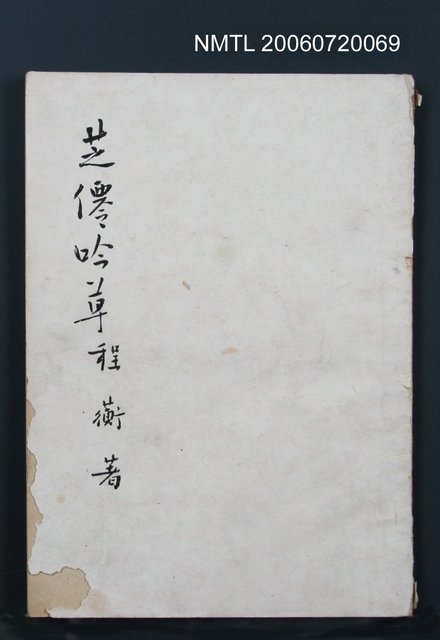 NMTL 20060720069
芝僊吟草 程衡著